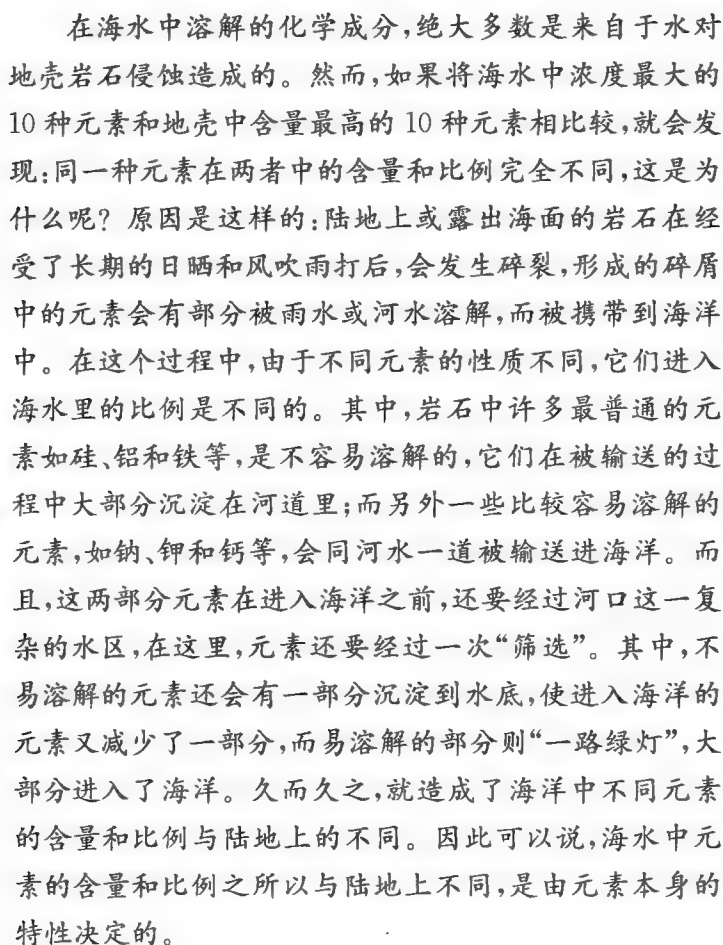 在海水中溶解的化学成分,绝大多数是来自于水对
地壳岩石侵蚀造成的。然而,如果将海水中浓度最大的
10 种元素和地壳中含量最高的 10 种元素相比较,就会发
现:同一种元素在两者中的含量和比例完全不同,这是为
什么呢? 原因是这样的:陆地上或露出海面的岩石在经
受了长期的日晒和风吹雨打后,会发生碎裂,形成的碎屑
中的元素会有部分被雨水或河水溶解,而被携带到海洋
中。在这个过程中,由于不同元素的性质不同,它们进入
海水里的比例是不同的。其中,岩石中许多最普通的元
素如硅、铝和铁等,是不容易溶解的,它们在被输送的过
程中大部分沉淀在河道里;而另外一些比较容易溶解的
元素,如钠、钾和钙等,会同河水一道被输送进海洋。而
且,这两部分元素在进入海洋之前,还要经过河口这一复
杂的水区,在这里,元素还要经过一次“筛选”。其中,不
易溶解的元素还会有一部分沉淀到水底,使进入海洋的
元素又减少了一部分,而易溶解的部分则“一路绿灯”,大
部分进入了海洋。久而久之,就造成了海洋中不同元素
的含量和比例与陆地上的不同。因此可以说,海水中元
素的含量和比例之所以与陆地上不同,是由元素本身的
特性决定的。